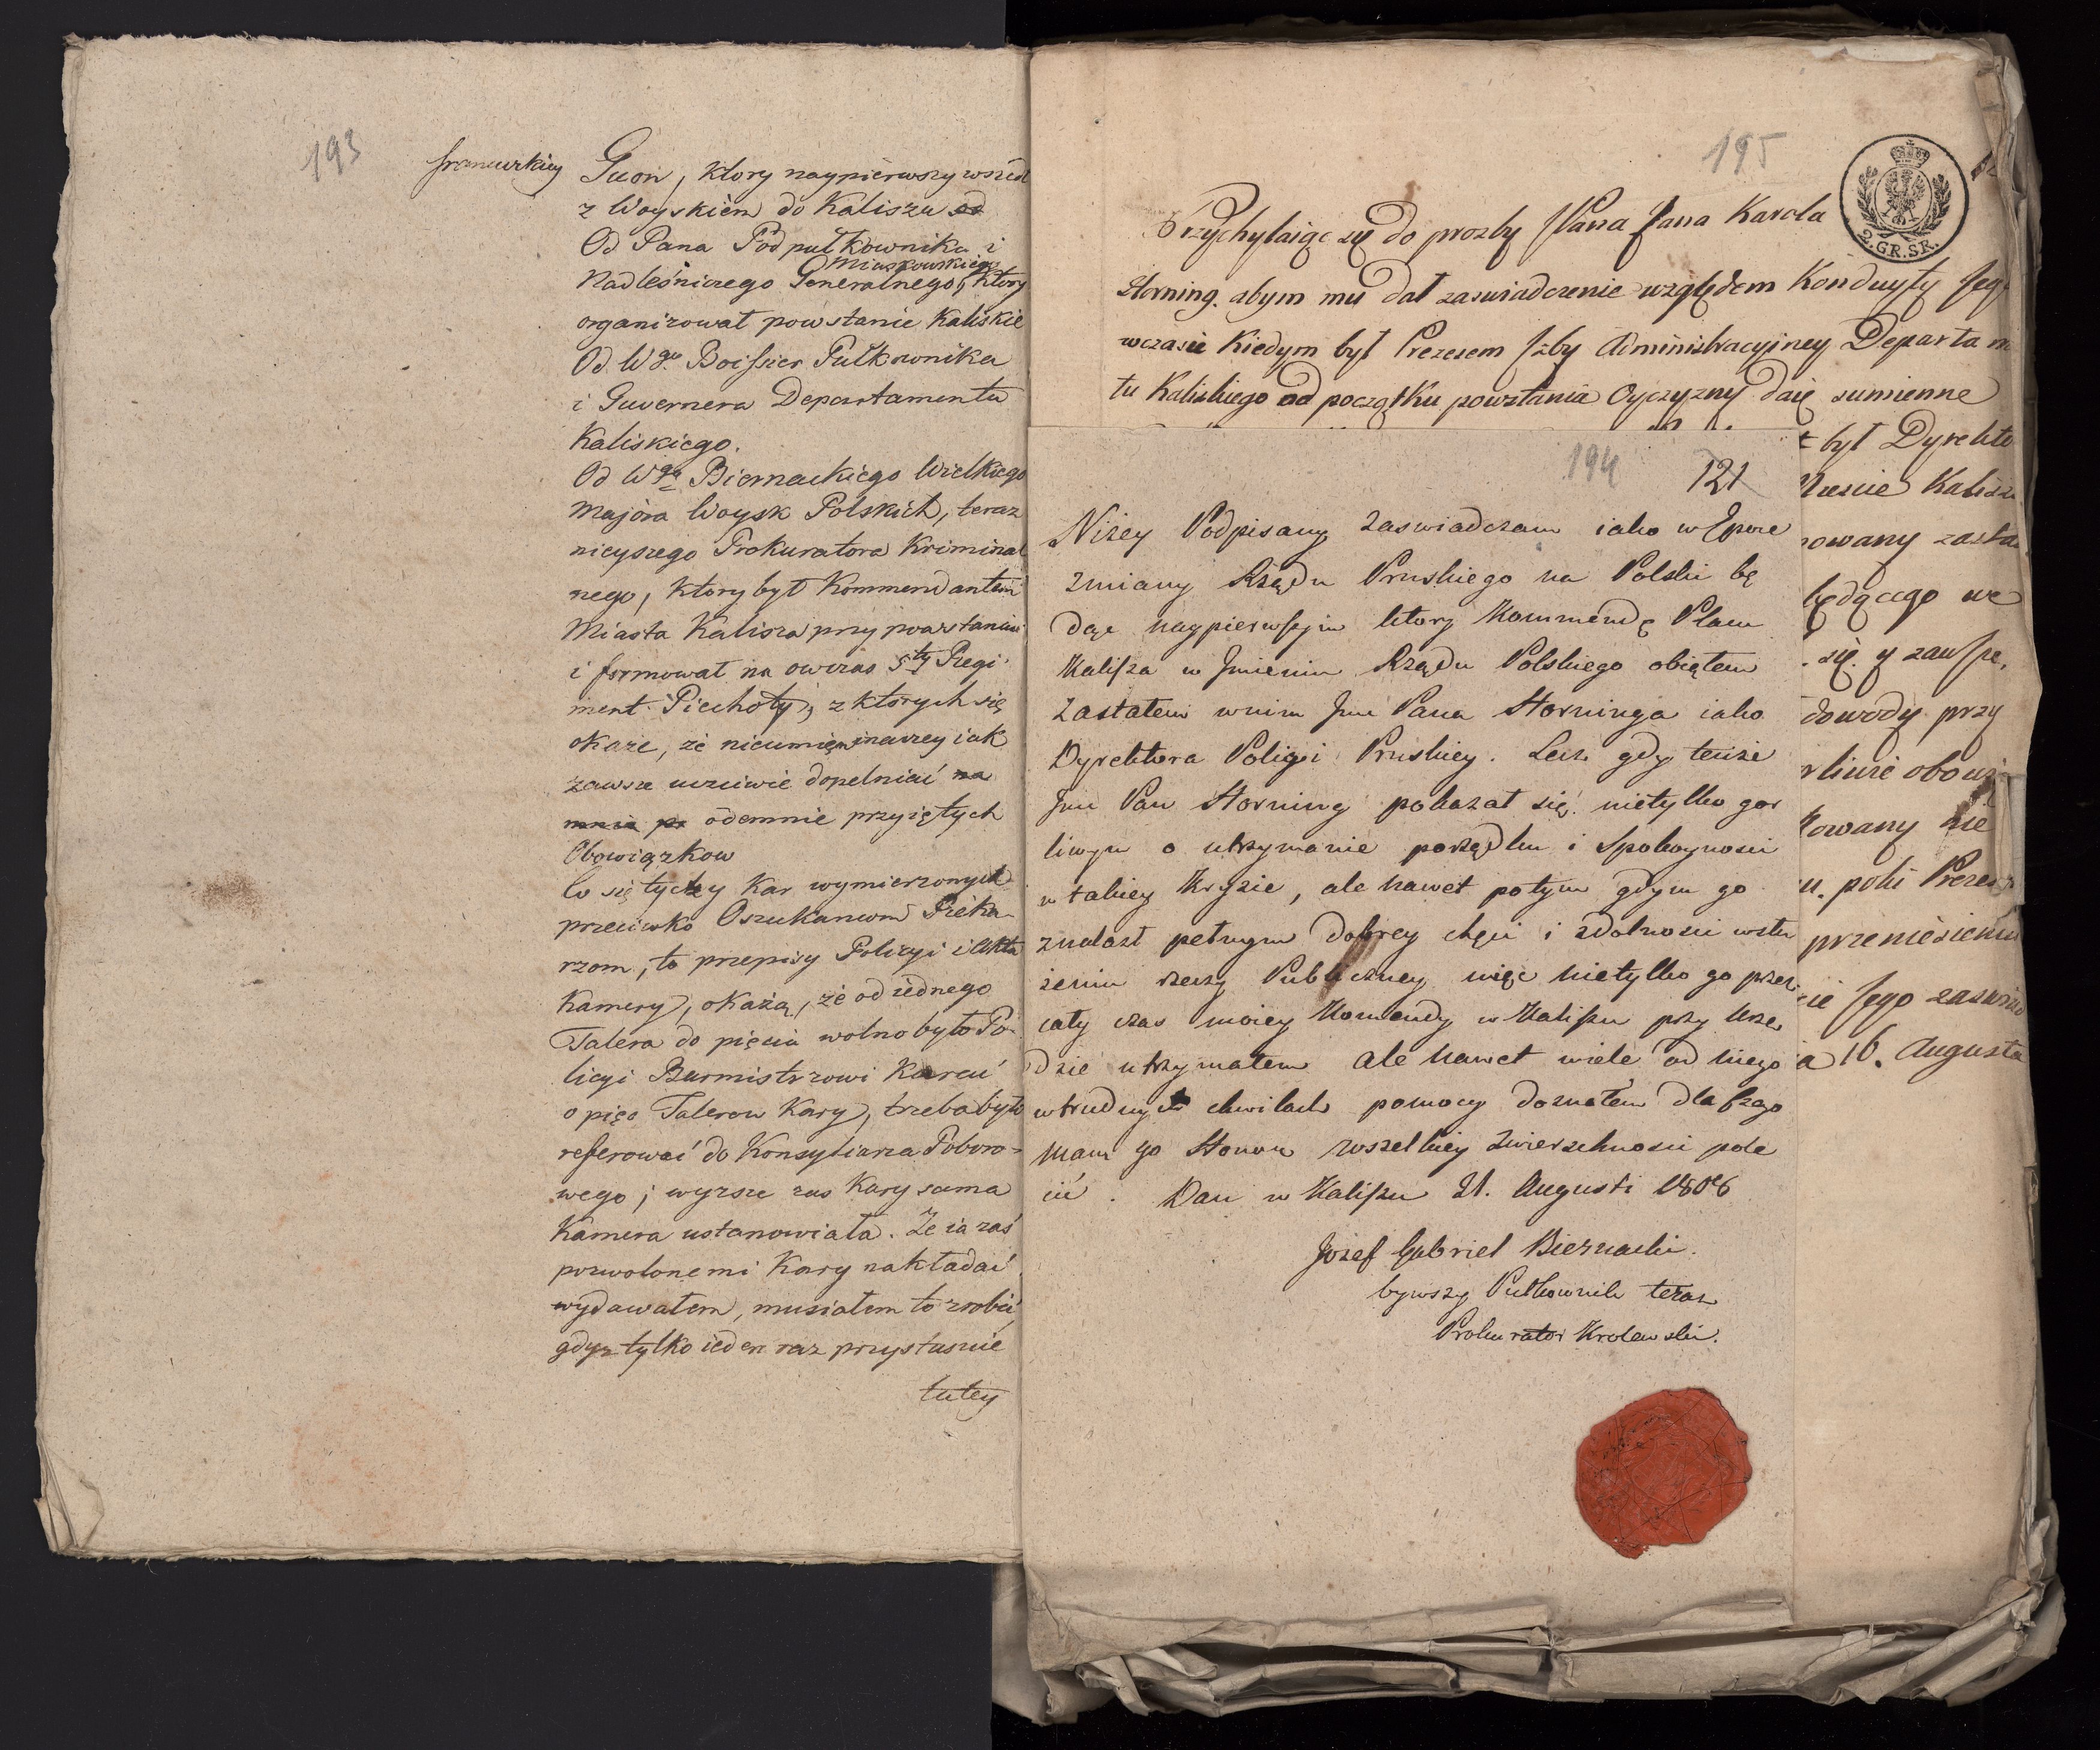 193
francuzkiey Guon, ktory naypierwszy wszedł
z Woyskiem do Kalisza od
Od Pana Podpułkownika i
Nadleśniczego Generalnego Miaskowskiego, ktory
organizował powstanie Kaliskie
Od Wgo Boissier Pułkownika
i Guvernera Departamentu
Kaliskiego.
Od Wgo Biernackiego Wielkiego
Majora Woysk Polskich, teraz
nieyszego Prokuratora Kriminal
nego, ktory był Kommendantem
Miasta Kalisza przy powstaniu
i formował na owczas 5ty Regi
ment Piechoty, z ktorych się
okaże, że nieumiem inaczey iak
zawsze uczciwie dopełniać na
mnie pr odemnie przyiętych
Obowiązkow
Co się tyczy Kar wymierzonych
przeciwko Oszukancom Pieka
rzom, to przepisy Policyi i Akta
Kamery, okażą, że od iednego
Talera do pięciu wolno było Po-
licyi Burmistrzowi Karać
o pięć Talerow Kary, trzeba było
referować do Konsyliarza Poboro-
wego; wyzsze zas Kary sama
Kamera ustanowiała. Ze ia zaś
pozwolone mi Kary nakładać
wydawałem, musiałem to zrobić,
gdyz tylko ieden raz przystasnie
tutey
195
2. GR. SR.
Przychylaiąc się do prozby JPana Jana Karola
Horning. abym mu dał zaswiadczenie względem Konduyty Jego
w czasie Kiedym był Prezesem Izby Administracyiney Departam
tu Kaliskiego od początku powstania Oyczyzny daię sumienne
194
121
Niżey Podpisany zaswiadczam iako w Epoce
zmiany Rządu Pruskiego na Polski bę
dąc naypierwszym ktory Kommendę Placu
Kalisza w Jmieniu Rządu Polskiego obiąłem
Zastałem w nim Jmć Pana Horninga iako
Dyrektora Policyi Pruskiey. Lecz gdy tenże
Jmć Pan Horning pokazał się nietylko gor
liwym o utrzymanie porządku i Spokoynosci
w takiey Kryzie, ale nawet potym gdym go
znalazł pełnym dobrey chęci i zdolnosci w słu
żeniu rzeczy Publiczney więc nietylko go przez
cały czas moiey Komendy w Kaliszu przy Urzę
dzie utrzymałem ale nawet wiele od niego
w trudnych chwilach pomocy doznałem dla czego
mam go Honor wszelkiey Zwierzchnosci pole
cić. Dan w Kaliszu 21. Augusti 1808
Jozef Gabriel Biernacki.
bywszy Pułkownik teraz
Prokurator Krolewski.
był Dyrekto
Miescie Kalisz
nowany zosta
będącego we
się. y zawsze,
dowody przy
rliwie obowi
kowany nie
u. poki Prezes
przeniesieniu
ie Jego zaswia
a 16. Augusta